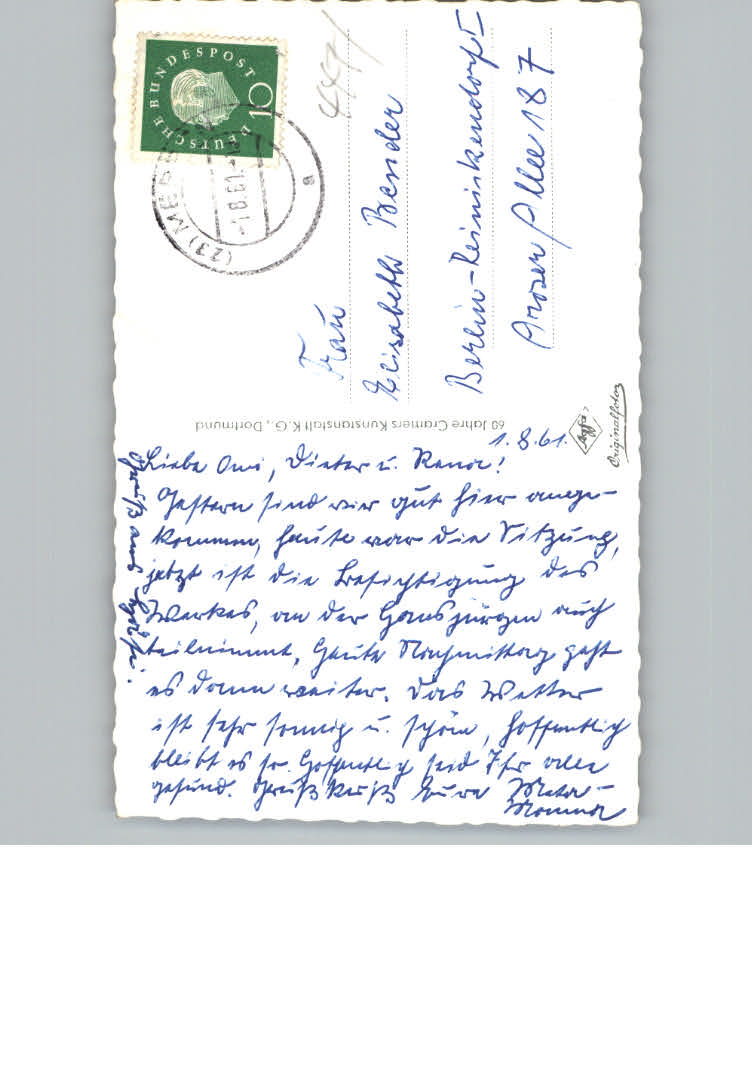 DEUTSCHE BUNDESPOST
10
(23) MEPPEN
-1.8.61.-
a
Frau
Elisabeth Bender
Berlin-Reinickendorf I
Aroser Allee 187
60 Jahre Cramers Kunstanstalt K.G., Dortmund
Agfa
Originalfoto
1.8.61.
Liebe Omi, Dieter u. Rena!
Gestern sind wir gut hier ange-
kommen, heute war die Sitzung,
jetzt ist die Besichtigung des
Werkes, an der Hansjürgen auch
teilnimmt, heute Nachmittag geht
es dann weiter. Das Wetter
ist sehr sonnig u. schön, hoffentlich
bleibt es so. Hoffentlich seid Ihr alle
gesund. Gruß Kuß Eure
Mama
Gruß aus